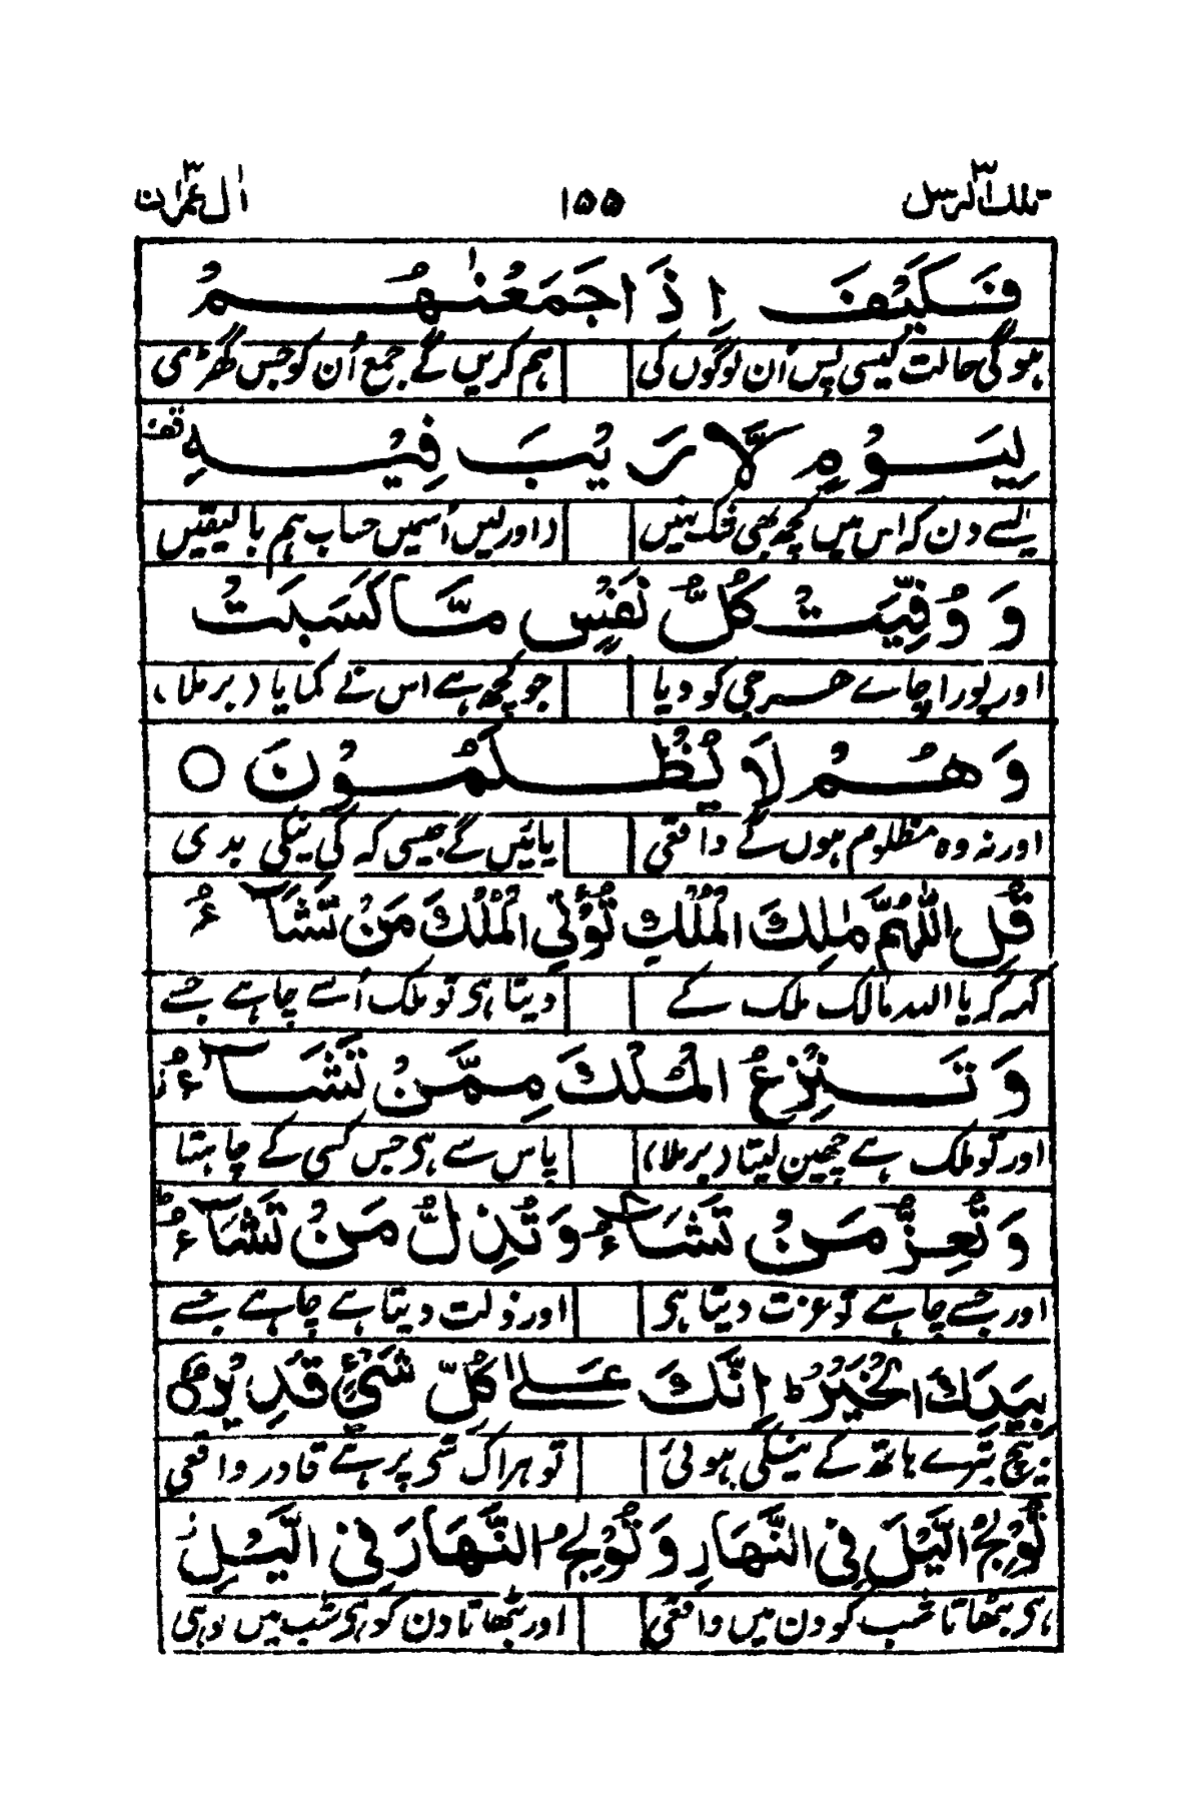 تلک الرسل ۳ ۱۵۵ اٰل عمرٰن ۳
فَكَيْفَ اِذَا جَمَعْنٰهُمْ
ہو گی حالت کیسی پس اُن لوگوں کی ہم کریں گے جمع اُن کو جس گھڑی
لِيَوْمٍ لَّا رَيْبَ فِيْهِ قف
ایسے دن کہ اس میں کچھ بھی شک نہیں (اور لیں اُسمیں حساب ہم بالیقیں
وَ وُفِّيَتْ كُلُّ نَفْسٍ مَّا كَسَبَتْ
اور پورا جائے ہر جی کو دیا جو کچھ ہے اس نے کمایا (برملا)
وَ هُمْ لَا يُظْلَمُوْنَ ○
اور نہ وہ مظلوم ہوں گے واقعی پائیں گے جیسی کہ کی نیکی بدی
قُلِ اللّٰهُمَّ مٰلِكَ الْمُلْكِ تُؤْتِي الْمُلْكَ مَنْ تَشَآءُ
کہہ کہ یا اللہ مالک ملک کے دیتا ہی تو ملک اُسے چاہے جسے
وَ تَنْزِعُ الْمُلْكَ مِمَّنْ تَشَآءُ ز
اور تو ملک ہے چھین لیتا (برملا) پاس سے ہی جس کسی کے چاہتا
وَ تُعِزُّ مَنْ تَشَآءُ وَ تُذِلُّ مَنْ تَشَآءُ ط
اور جسے چاہے تو عزت دیتا ہی اور ذلت دیتا ہے چاہے جسے
بِيَدِكَ الْخَيْرُ ط اِنَّكَ عَلٰى كُلِّ شَيْءٍ قَدِيْرٌ ○
بیچ تیرے ہاتھ کے نیکی ہوئی تو ہر اک شی پر ہے قادر واقعی
تُوْلِجُ الَّيْلَ فِي النَّهَارِ وَ تُوْلِجُ النَّهَارَ فِي الَّيْلِ ز
ہی بٹھاتا شب کو دن میں واقعی اور بٹھاتا دن کو ہی شب میں وہی